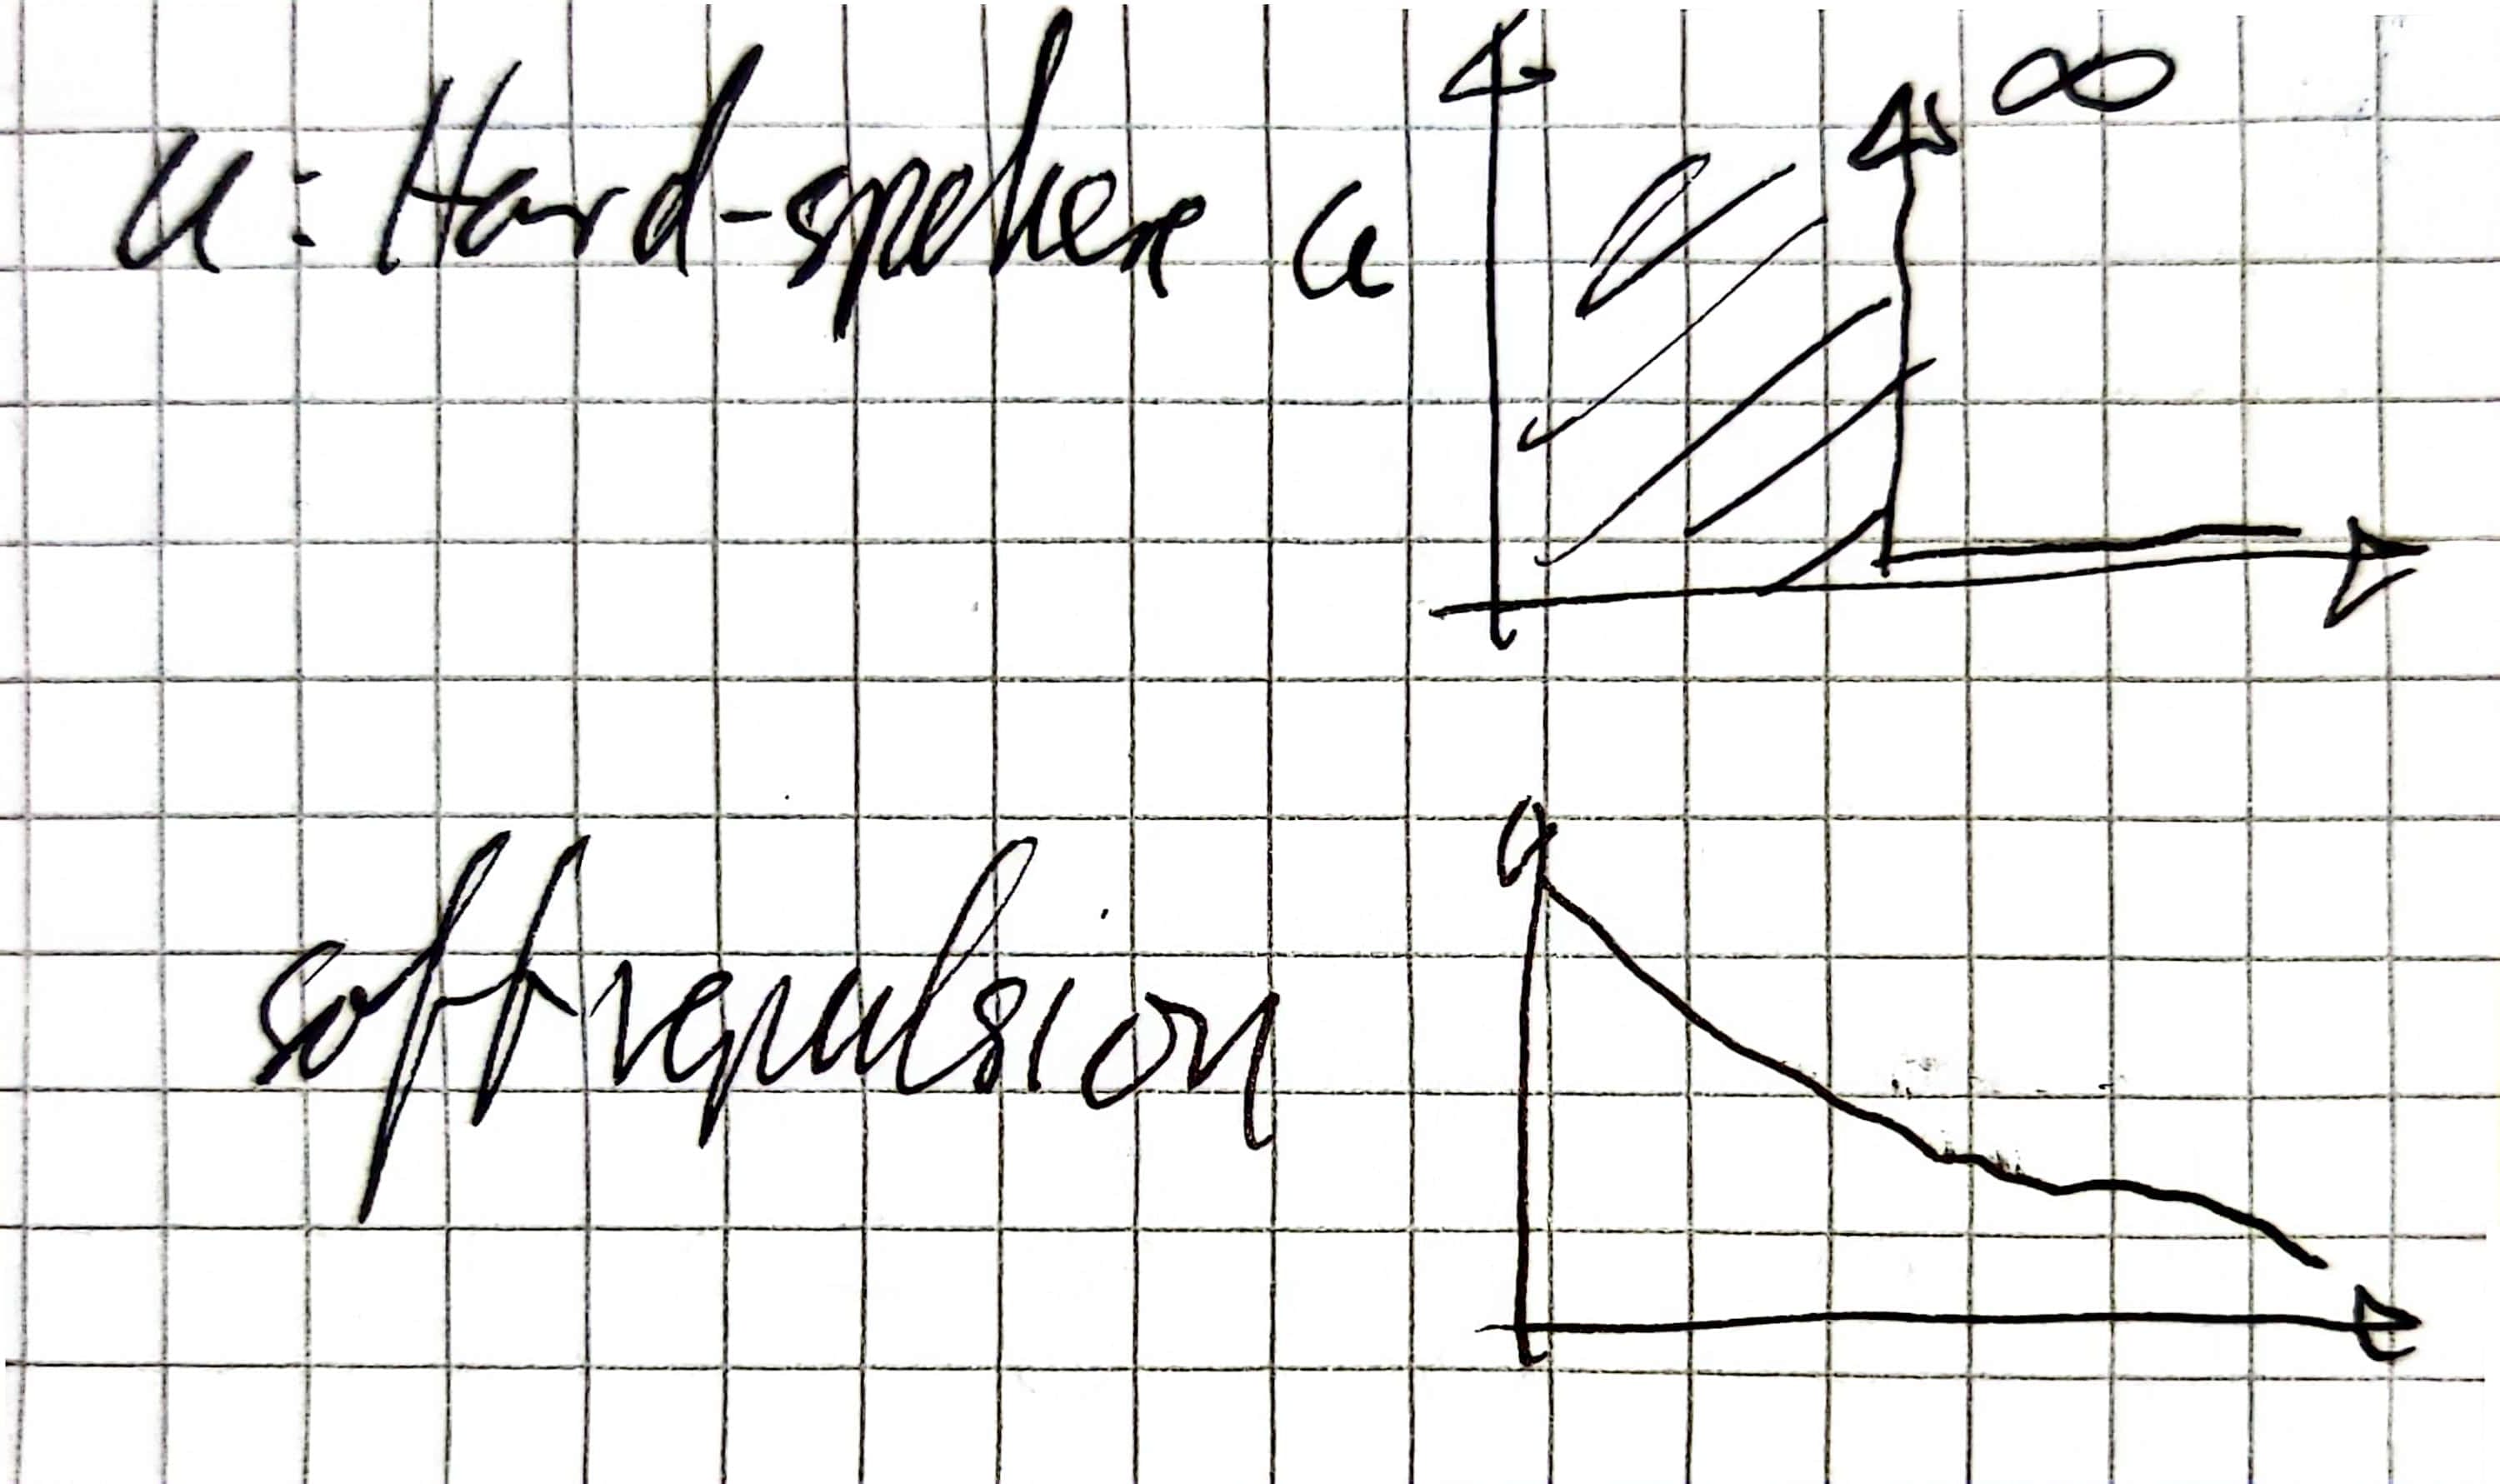 u: Hard-spehere u ∞
soft repulsion